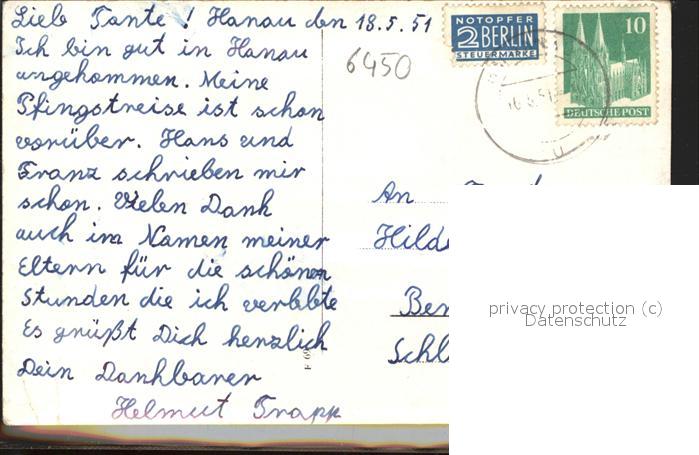 Lieb Tante! Hanau den 18.5.51
Ich bin gut in Hanau
angekommen. Meine
Pfingstreise ist schon
vorüber. Hans und
Franz schrieben mir
schon. Vielen Dank
auch im Namen meiner
Eltern für die schönen
Stunden die ich verlebte
Es grüßt Dich herzlich
Dein Dankbarer
Helmut Trapp
NOTOPFER
2 BERLIN
STEUERMARKE
10
DEUTSCHE POST
6450
An
Hilde
Ben
Schl
privacy protection (c)
Datenschutz